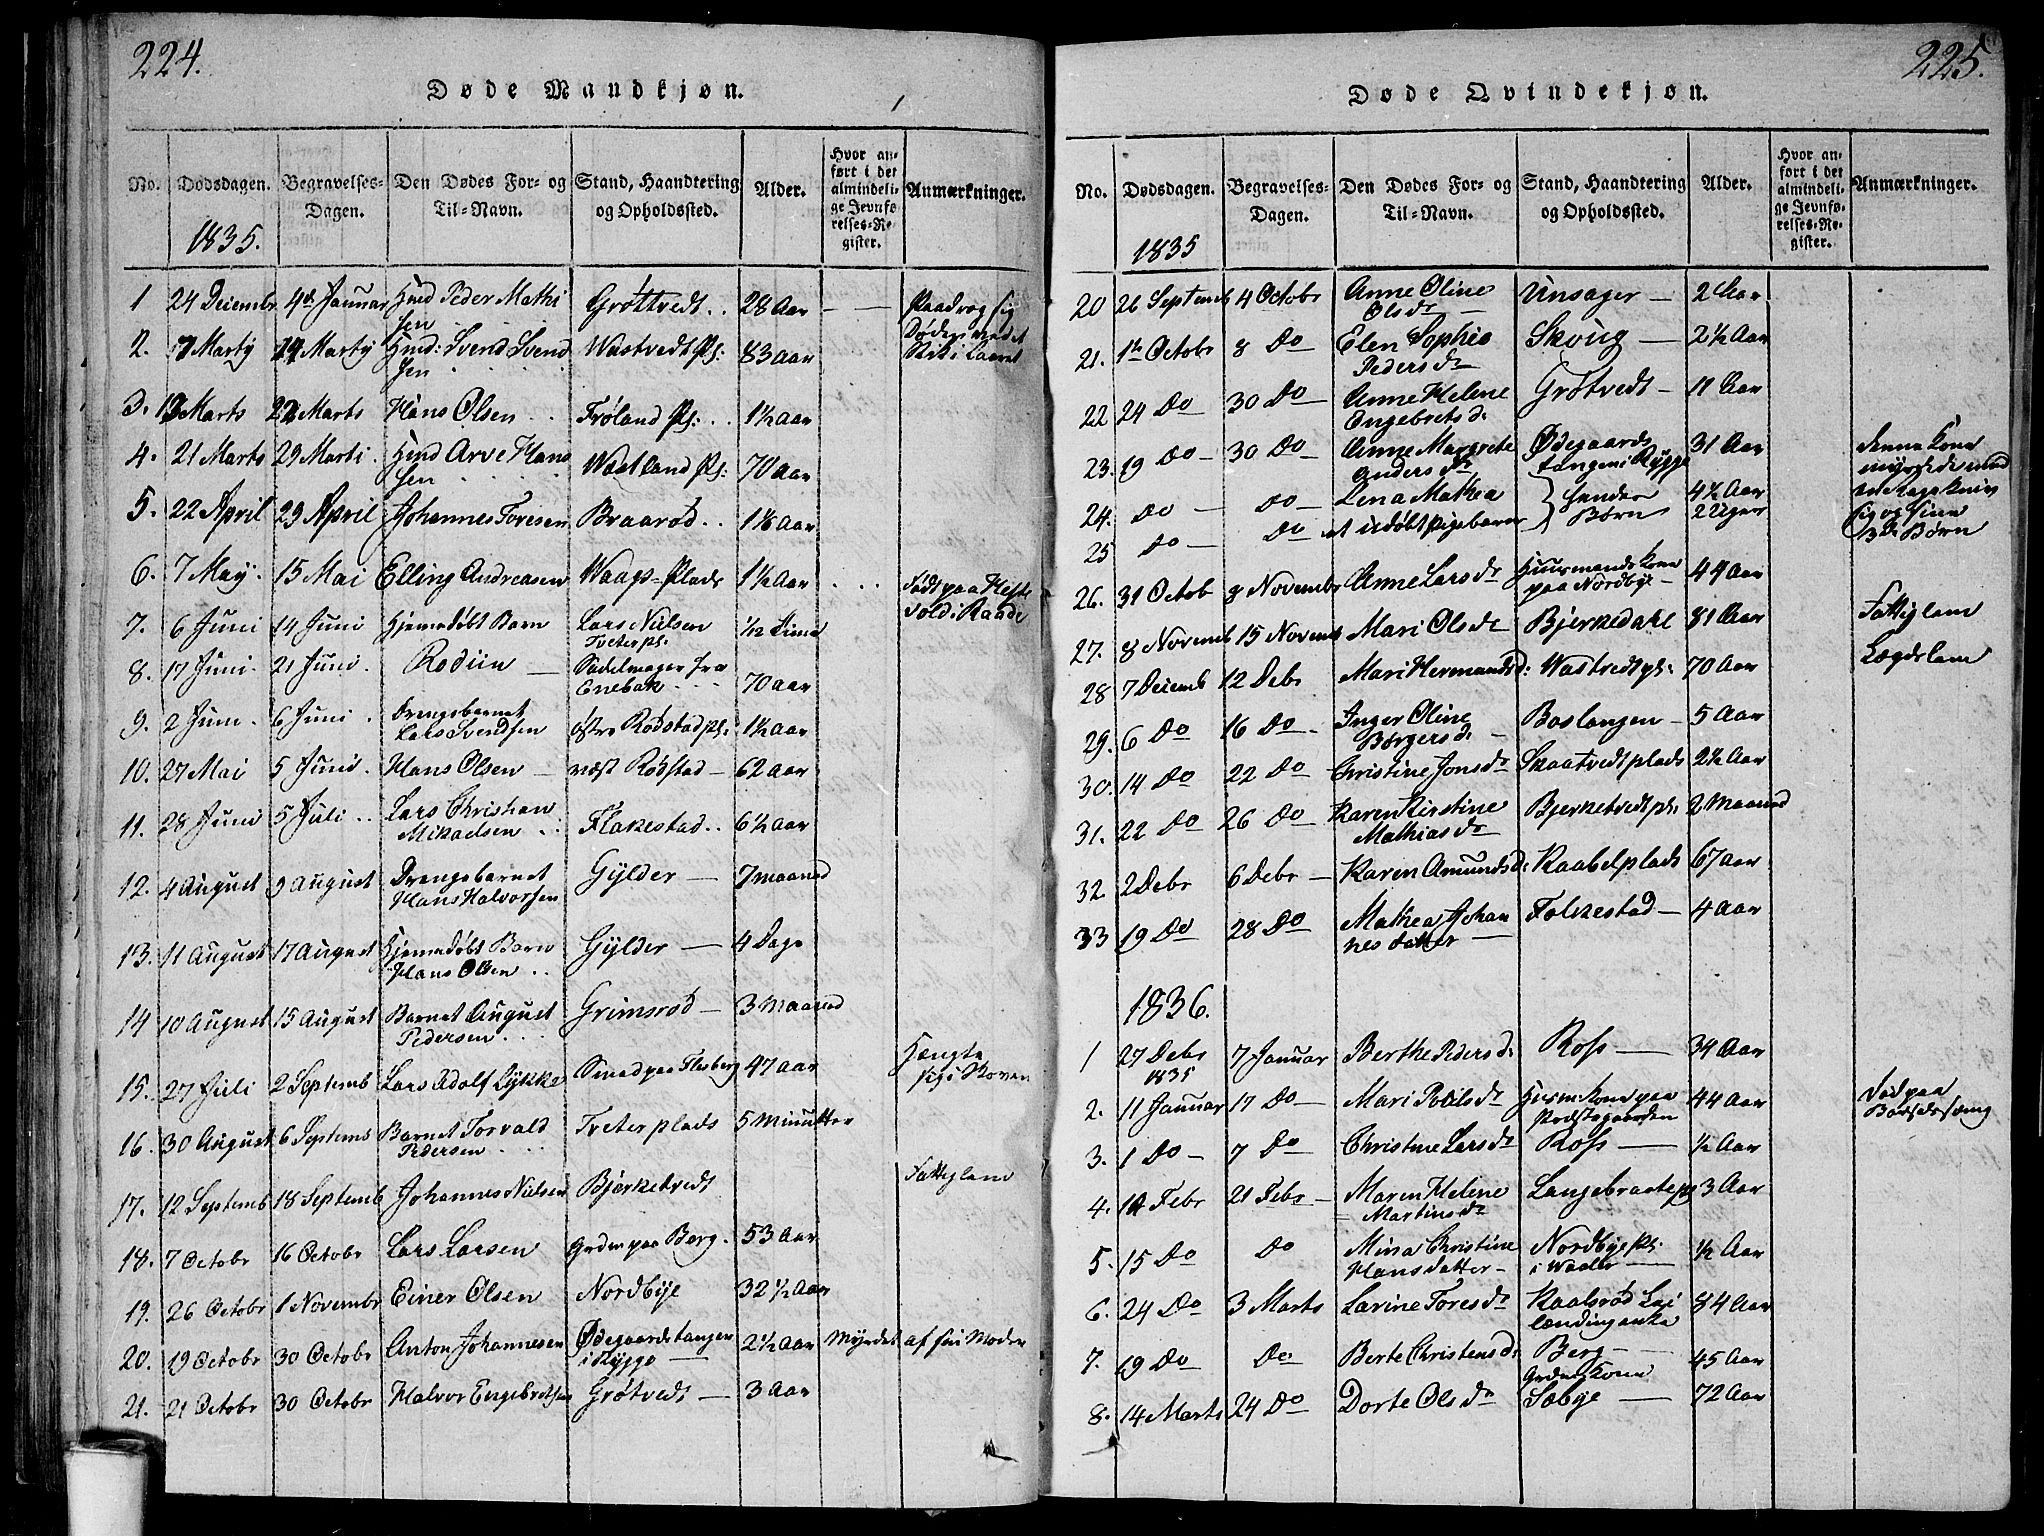 224.
Døde Mandkjøn.
No. Dødsdagen. Begravelses-Dagen. Den Dødes For- og Til-Navn. Stand, Haandtering og Opholdssted. Alder. Hvor anført i det almindelige Jevnførelses-Register. Anmærkninger.
1835.
1 24 Deiembr 4de Januar Hmd Peder Mathisen Grøttvedt 28 Aar
2. 7 Marty 14 Marty Hmd: Svend Svendsen Wastvedt Pl: 83 Aar
3. 13 Marts 22 Marts Hans Olsen Frøland Pl: 1½ Aar
4. 21 Marts 29 Marti Hmd Arve Hansen Wastland Pl: 70 Aar
5. 22 April 29 April Johannes Toresen Braarød 1⅙ Aar
6. 7 May 15 Mai Elling Andreasen Waags-Plads 1½ Aar
7. 6 Juni 14 Juni Hjemedøbt Barn Lars Nielsen Tveterpl. 1/12 Time Født paa Hestevold i Raade
8. 17 Juni 21 Juni Rodiin Sadelmager fra Enebak 70 aar
9. 2 Juni 6 Juni Drengebarnet Lars Svendsen østre Rødstad pl: 1½ Aar
10. 27 Mai 5 Juni Hans Olsen væst Rødstad 62 aar
11. 28 Juni 5 Juli Lars Christian Mikaelsen Flakestad 6½ aar
12. 4 August 9 August Drengebarnet Hans Halvorsen Gylder 7 maaned
13. 11 August 17 August Hjemedøbt Barn Hans Olsen Gylder 4 Dage
14 10 August 15 August Barnet August Pedersen Grimsrød 3 Maaned
15. 27 Juli 2 Septemb Lars Adolf Lykke Smed paa Flesberg 47 aar Hængte sig i Skoven
16. 30 August 6 Septemb Barnet Torvald Pedersen Tveterplads 5 Minutter
17. 12 Septemb 18 Septemb Johannes Nielsen Bjerketvedt Fattiglem
18. 7 Octobr 16 Octobr Lars Larsen Grdm paa Berg 53 Aar
19. 26 Octobr 1 Novembr Einer Olsen Nordbye 32½ Aar
20. 19 Octobr 30 Octobr Anton Johannesen Ødegaardstangen i Rygge 2½ Aar Myrdet af sin Moder
21. 21 Octobr 30 Octobr Halvor Engebretsen Grøtvedt 3 Aar
225.
Døde Qvindekjøn.
No. Dødsdagen. Begravelses-Dagen. Den Dødes For- og Til-Navn. Stand, Haandtering og Opholdssted. Alder. Hvor anført i det almindelige Jevnførelses-Register. Anmærkninger.
1835
20 26 Septemb 4 Octobr Anne Oline Olsdr Unsager 2 Aar
21. 1te Octobr 8 Do Elen Sophie Pedersdr Skoug 2½ Aar
22 24 Do 30 Do Anne Helene Engebretsd. Grøtvedt 11 Aar
23. 19 Do 30 Do Anne Margrete Andersdr Ødegaardstangen i Rygge 31 Aar denne Kone myrdede med en Ragekniv sig og sine Børn
24. Do Do Lena Mathea } hendes Børn 4½ Aar
25 Do Do et udøbt pigebarn 2 Uger
26. 31 Octob 8 Novembr Anne Larsdr Huusmandskone paa Nordbye 49 Aar
27. 8 Novemb 15 Novemb Mari Olsdr Bjerkedahl 81 Aar Fattiglem
28 7 Deiemb 12 Debr Mari Hermandsd: Wastvedt pl. 70 Aar Lægdslem
29. 6 Do 16 Do Inger Oline Børgersd Boslangen 5 Aar
30. 14 Do 22 Do Christine Jonsdr Skaatvedtplads 2½ Aar
31. 22 Do 26 Do Karen Kirstine Mathiasdr Bjerketvedt pl: 2 Maaned
32. 2 Debr 6 Debr Karen Amundsd: Kaabelplads 67 aar
33 19 Do 28 Do Mathea Johannesdatter Folkestad 4 aar
1836.
1 27 Debr 1835 7 Januar Berthe Pedersd: Ross 34 Aar
2. 11 Januar 17 Do Mari Povlsdr Husm:Kone paa Præstegaarden 44 Aar Død paa Barselseng
3. 1 Do 7 Do Christine Larsdr Ross ½ Aar
4. 14 Febr 21 Febr Maren Helene Martinsdr Langebraate p 3 Aar
5. 15 Do Do Mina Christine Hansdatter Nordbye Pl: i Waaler ½ Aar
6. 24 Do 3 Marts Lavine Toresdr Kaalsrød Leilændingenke 84 Aar
7. 19 Do Do Berte Christensd: Berg Grdm:Kone 45 Aar
8. 14 Marts 24 Do Dorte Olsdr Sæbye 72 Aar